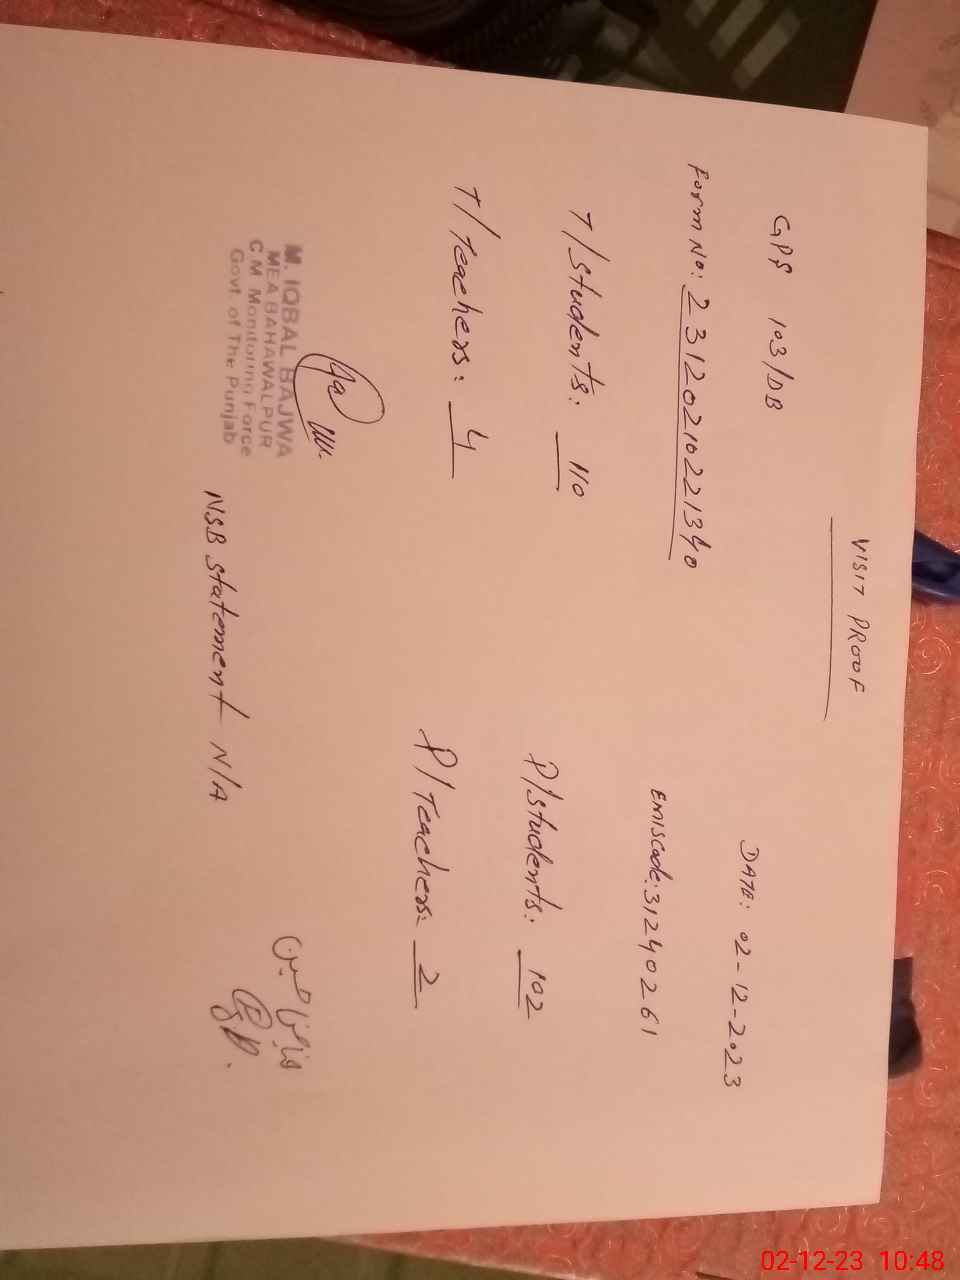 VISIT PROOF
GPS 103/DB
DATE: 02-12-2023
Form No: 23120210221340
EMIScode: 31240261
T/Students: 110
P/Students: 102
T/Teachers: 4
P/Teachers: 2
M. IQBAL BAJWA
MEA BAHAWALPUR
C.M. Monitoring Force
Govt. of The Punjab
NSB Statement N/A
02-12-23 10:48